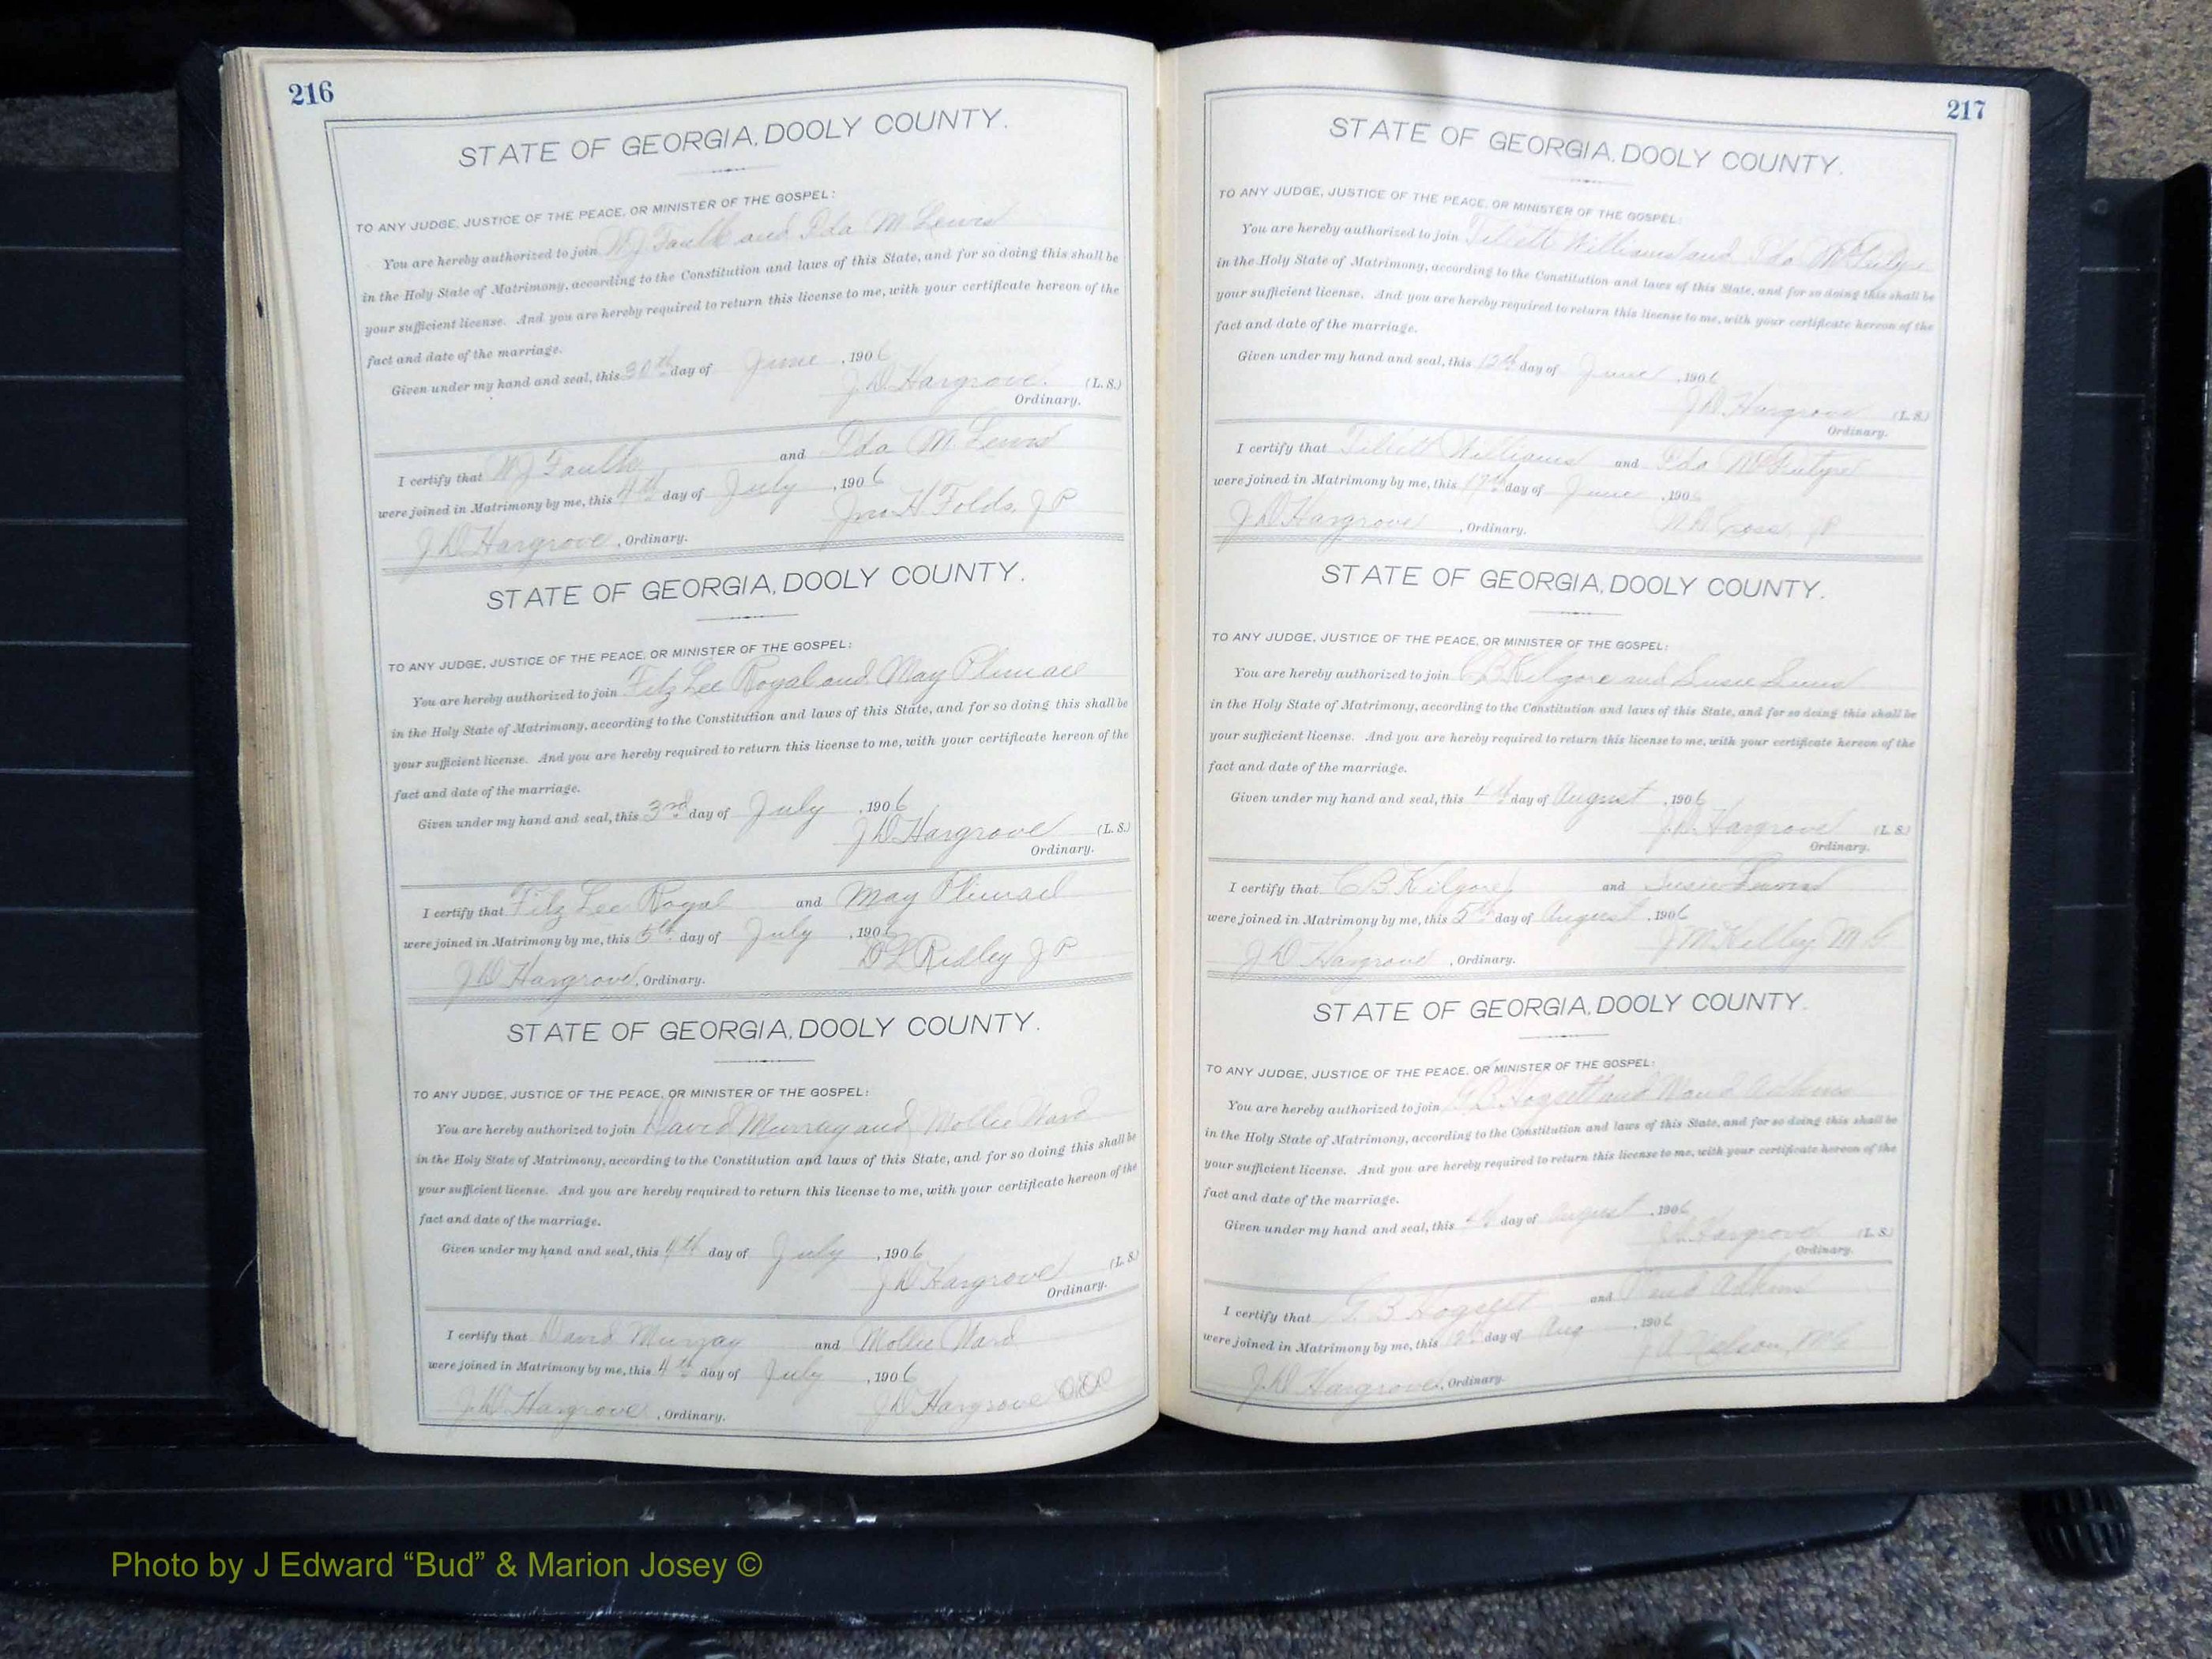 216
STATE OF GEORGIA, DOOLY COUNTY.
TO ANY JUDGE, JUSTICE OF THE PEACE, OR MINISTER OF THE GOSPEL:
You are hereby authorized to join W J Faulk and Ida M Lewis
in the Holy State of Matrimony, according to the Constitution and laws of this State, and for so doing this shall be
your sufficient license. And you are hereby required to return this license to me, with your certificate hereon of the
fact and date of the marriage.
Given under my hand and seal, this 30th day of June, 1906
J D Hargrove. (L. S.)
Ordinary.
I certify that W J Faulk and Ida M. Lewis
were joined in Matrimony by me, this 4th day of July, 1906
Jno H Folds, J P
J D Hargrove, Ordinary.
STATE OF GEORGIA, DOOLY COUNTY.
TO ANY JUDGE, JUSTICE OF THE PEACE, OR MINISTER OF THE GOSPEL:
You are hereby authorized to join Fitz Lee Royal and May
in the Holy State of Matrimony, according to the Constitution and laws of this State, and for so doing this shall be
your sufficient license. And you are hereby required to return this license to me, with your certificate hereon of the
fact and date of the marriage.
Given under my hand and seal, this 3rd day of July, 1906
J D Hargrove (L. S.)
Ordinary.
I certify that Fitz Lee Royal and May
were joined in Matrimony by me, this 5th day of July, 1906
D L Ridley J P
J D Hargrove, Ordinary.
STATE OF GEORGIA, DOOLY COUNTY.
TO ANY JUDGE, JUSTICE OF THE PEACE, OR MINISTER OF THE GOSPEL:
You are hereby authorized to join David Murray and Mollie Ward
in the Holy State of Matrimony, according to the Constitution and laws of this State, and for so doing this shall be
your sufficient license. And you are hereby required to return this license to me, with your certificate hereon of the
fact and date of the marriage.
Given under my hand and seal, this 4th day of July, 1906
J D Hargrove (L. S.)
Ordinary.
I certify that David Murray and Mollie Ward
were joined in Matrimony by me, this 4th day of July, 1906
J D Hargrove
J D Hargrove, Ordinary.
217
STATE OF GEORGIA, DOOLY COUNTY.
TO ANY JUDGE, JUSTICE OF THE PEACE, OR MINISTER OF THE GOSPEL:
You are hereby authorized to join Williams and Ida McIntyre
in the Holy State of Matrimony, according to the Constitution and laws of this State, and for so doing this shall be
your sufficient license. And you are hereby required to return this license to me, with your certificate hereon of the
fact and date of the marriage.
Given under my hand and seal, this day of June, 1906
J D Hargrove (L. S.)
Ordinary.
I certify that Williams and Ida McIntyre
were joined in Matrimony by me, this 17th day of June, 1906
J D Hargrove, Ordinary.
STATE OF GEORGIA, DOOLY COUNTY.
TO ANY JUDGE, JUSTICE OF THE PEACE, OR MINISTER OF THE GOSPEL:
You are hereby authorized to join C B Kilgore and Susie
in the Holy State of Matrimony, according to the Constitution and laws of this State, and for so doing this shall be
your sufficient license. And you are hereby required to return this license to me, with your certificate hereon of the
fact and date of the marriage.
Given under my hand and seal, this 4th day of August, 1906
J. D. Hargrove (L. S.)
Ordinary.
I certify that C B Kilgore and Susie
were joined in Matrimony by me, this 5th day of August, 1906
J M Kelley, M G
J D Hargrove, Ordinary.
STATE OF GEORGIA, DOOLY COUNTY.
TO ANY JUDGE, JUSTICE OF THE PEACE, OR MINISTER OF THE GOSPEL:
You are hereby authorized to join G B Hogsett and Maud Adkins
in the Holy State of Matrimony, according to the Constitution and laws of this State, and for so doing this shall be
your sufficient license. And you are hereby required to return this license to me, with your certificate hereon of the
fact and date of the marriage.
Given under my hand and seal, this day of August, 1906
J D Hargrove (L. S.)
Ordinary.
I certify that G B Hogsett and Maud Adkins
were joined in Matrimony by me, this day of Aug, 1906
Nelson, M G
J D Hargrove, Ordinary.
Photo by J Edward “Bud” & Marion Josey ©